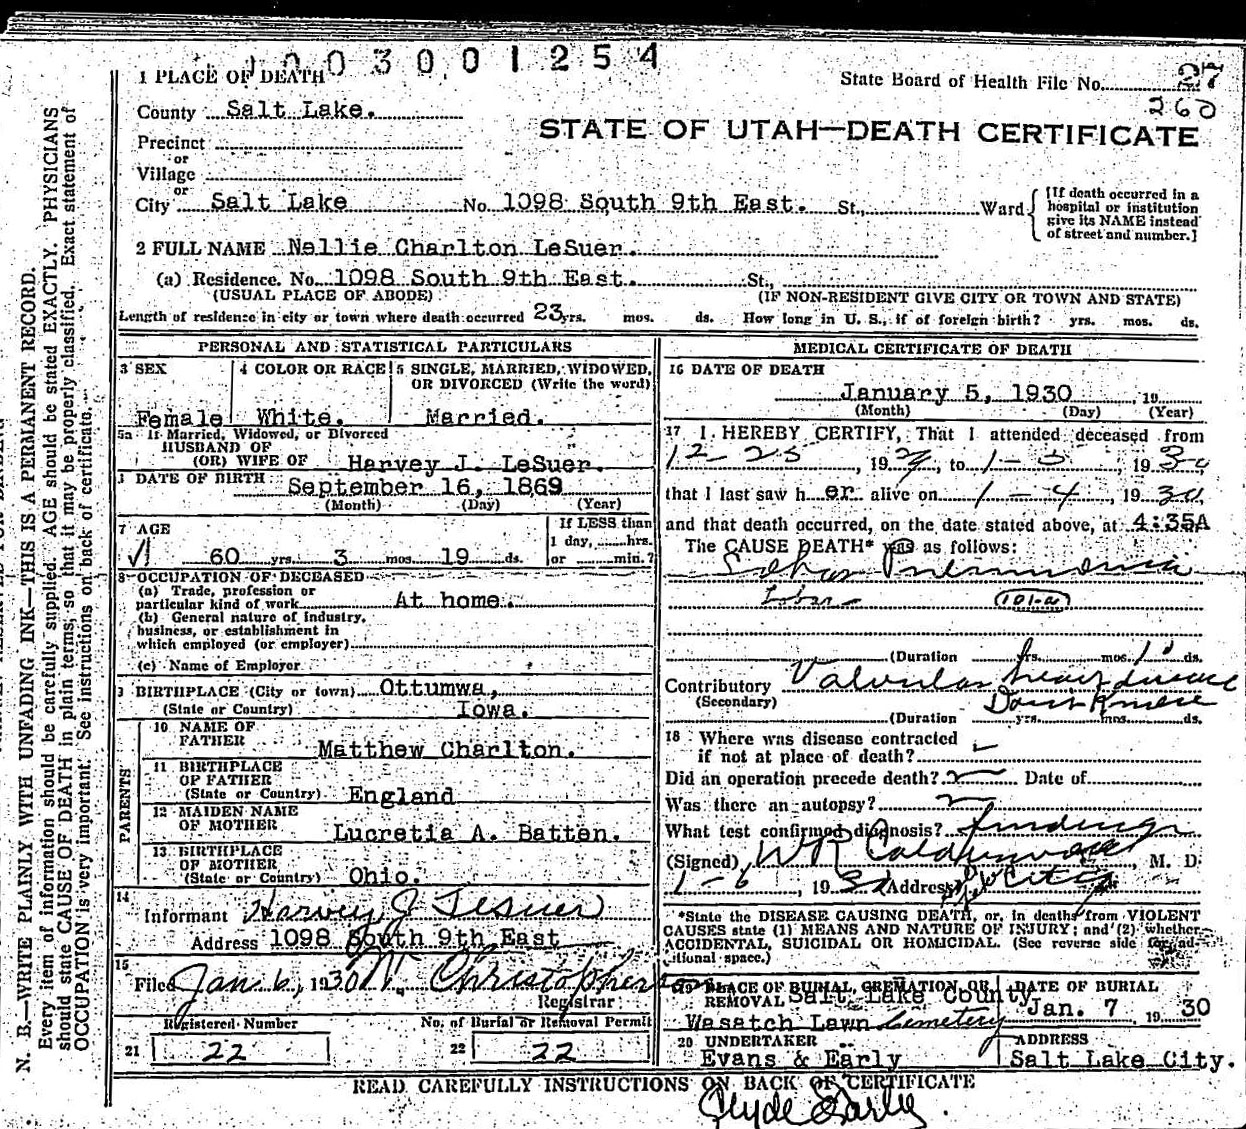 1003001254
1 PLACE OF DEATH
State Board of Health File No. 27
260
County Salt Lake.
STATE OF UTAH—DEATH CERTIFICATE
Precinct
or
Village
or
City Salt Lake No. 1098 South 9th East. St., Ward
[If death occurred in a
hospital or institution
give its NAME instead
of street and number.]
2 FULL NAME Nellie Charlton LeSuer.
(a) Residence. No. 1098 South 9th East. St.,
(USUAL PLACE OF ABODE) (IF NON-RESIDENT GIVE CITY OR TOWN AND STATE)
Length of residence in city or town where death occurred 23 yrs. mos. ds. How long in U. S., if of foreign birth? yrs. mos. ds.
PERSONAL AND STATISTICAL PARTICULARS
3 SEX
Female
4 COLOR OR RACE
White.
5 SINGLE, MARRIED, WIDOWED,
OR DIVORCED (Write the word)
Married.
5a If Married, Widowed, or Divorced
HUSBAND OF
(OR) WIFE OF Harvey J. LeSuer.
DATE OF BIRTH September 16, 1869
(Month) (Day) (Year)
7 AGE
60 yrs. 3 mos. 19 ds.
If LESS than
1 day, hrs.
or min.?
8 OCCUPATION OF DECEASED
(a) Trade, profession or
particular kind of work At home.
(b) General nature of industry,
business, or establishment in
which employed (or employer)
(c) Name of Employer
BIRTHPLACE (City or town) Ottumwa,
(State or Country) Iowa.
PARENTS
10 NAME OF
FATHER Matthew Charlton.
11 BIRTHPLACE
OF FATHER
(State or Country) England
12 MAIDEN NAME
OF MOTHER Lucretia A. Batten.
13 BIRTHPLACE
OF MOTHER
(State or Country) Ohio.
14
Informant Harvey J Lesuer
Address 1098 South 9th East
15
Filed Jan. 6, 1930 M. Christopherson
Registrar
Registered Number
21 22
No. of Burial or Removal Permit
22 22
MEDICAL CERTIFICATE OF DEATH
16 DATE OF DEATH
January 5, 1930, 19
(Month) (Day) (Year)
17 I HEREBY CERTIFY, That I attended deceased from
12-25, 1929, to 1-5, 1930
that I last saw her alive on 1-4, 1930,
and that death occurred, on the date stated above, at 4:35A
The CAUSE DEATH* was as follows:
Lobar Pneumonia
Lobar 101-a
(Duration yrs. mos. 10 ds.
Contributory Valvular heart disease
(Secondary)
(Duration yrs. mos. ds.
18 Where was disease contracted
if not at place of death?
Did an operation precede death? Date of
Was there an autopsy?
What test confirmed diagnosis? findings
(Signed) W R Calderwood, M. D.
1-6, 1930 Address S L City
*State the DISEASE CAUSING DEATH, or, in deaths from VIOLENT
CAUSES state (1) MEANS AND NATURE OF INJURY; and (2) whether
ACCIDENTAL, SUICIDAL OR HOMICIDAL. (See reverse side for ad-
ditional space.)
19 PLACE OF BURIAL, CREMATION, OR
REMOVAL Salt Lake County
Wasatch Lawn Cemetery
DATE OF BURIAL
Jan. 7, 1930
20 UNDERTAKER
Evans & Early
ADDRESS
Salt Lake City.
READ CAREFULLY INSTRUCTIONS ON BACK OF CERTIFICATE
Clyde Early.
N. B.—WRITE PLAINLY WITH UNFADING INK—THIS IS A PERMANENT RECORD.
Every item of information should be carefully supplied. AGE should be stated EXACTLY. PHYSICIANS
should state CAUSE OF DEATH in plain terms, so that it may be properly classified. Exact statement of
OCCUPATION is very important. See instructions on back of certificate.